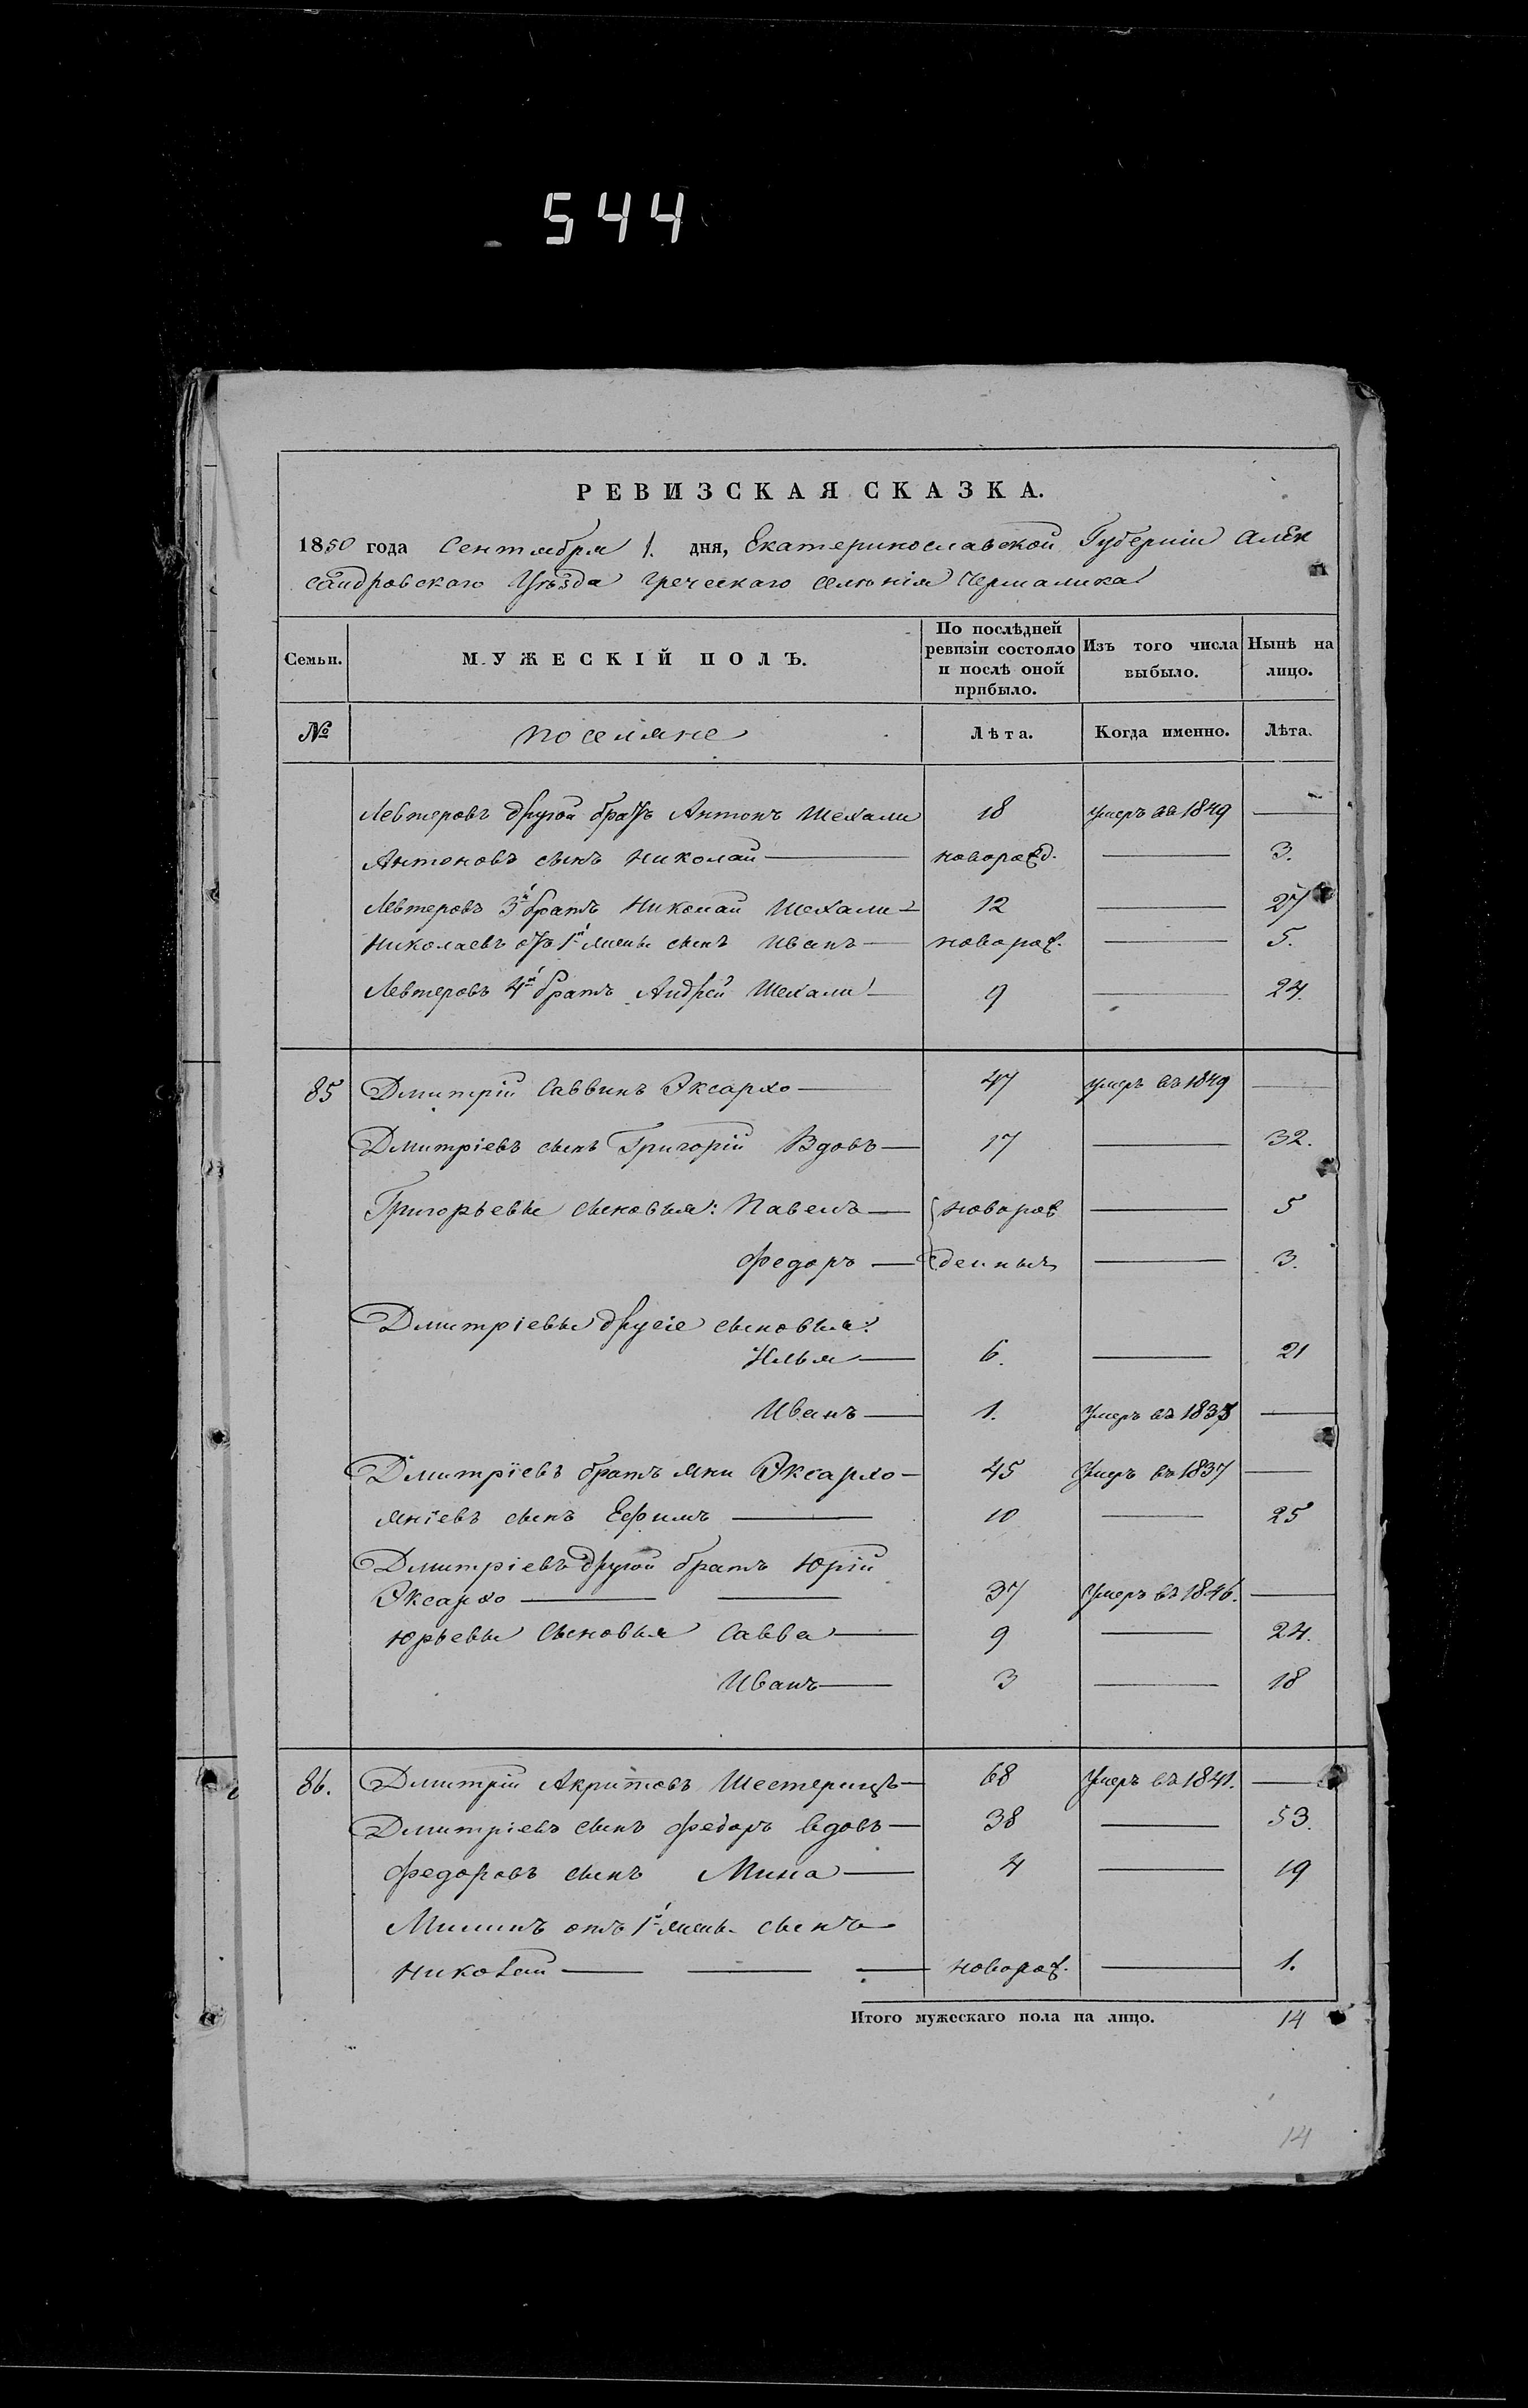 544
РЕВИЗСКАЯ СКАЗКА.
1850 года Сентября 1. дня, Екатеринославской Губерніи Алек
сандровскаго Уѣзда Греческаго селѣнія Чермалика
Семьи. МУЖЕСКІЙ ПОЛЪ. По послѣдней ревизіи состояло и послѣ оной прибыло. Изъ того числа выбыло. Нынѣ на лицо.
№ поселяне Лѣта. Когда именно. Лѣта.
Левтеровъ другой братъ Антонъ Шехали 18 умеръ въ 1849 —
Антоновъ сынъ Николай — новорожд. — 3.
Левтеровъ 3й братъ Николай Шехали — 12 — 27
Николаевъ отъ 1й жены сынъ Иванъ — новорож. — 5.
Левтеровъ 4й братъ Андрей Шехали — 9 — 24.
85 Дмитрій Саввинъ Эксархо — 47 умеръ въ 1849 —
Дмитріевъ сынъ Григорій Вдовъ — 17 — 32.
Григорьевы сыновья: Павелъ — новорож — 5
Федоръ — денныя — 3.
Дмитріевы другіе сыновья:
Илья — 6. — 21
Иванъ — 1. Умеръ въ 1838 —
Дмитріевъ братъ Яни Эксархо — 45 Умеръ въ 1837 —
Яніевъ сынъ Ефимъ — 10 — 25
Дмитріевъ другой братъ Юрій
Эксархо — — 37 Умеръ въ 1846. —
Юрьевы Сыновья Савва — 9 — 24.
Иванъ — 3 — 18
86. Дмитрій Акритовъ Шестерицъ — 68 Умеръ въ 1841. —
Дмитріевъ сынъ Федоръ вдовъ — 38 — 53.
Федоровъ сынъ Мина — 4 — 19
Мининъ отъ 1й жены сынъ
Николай — — — новорож. — 1.
Итого мужескаго пола на лицо. 14
14